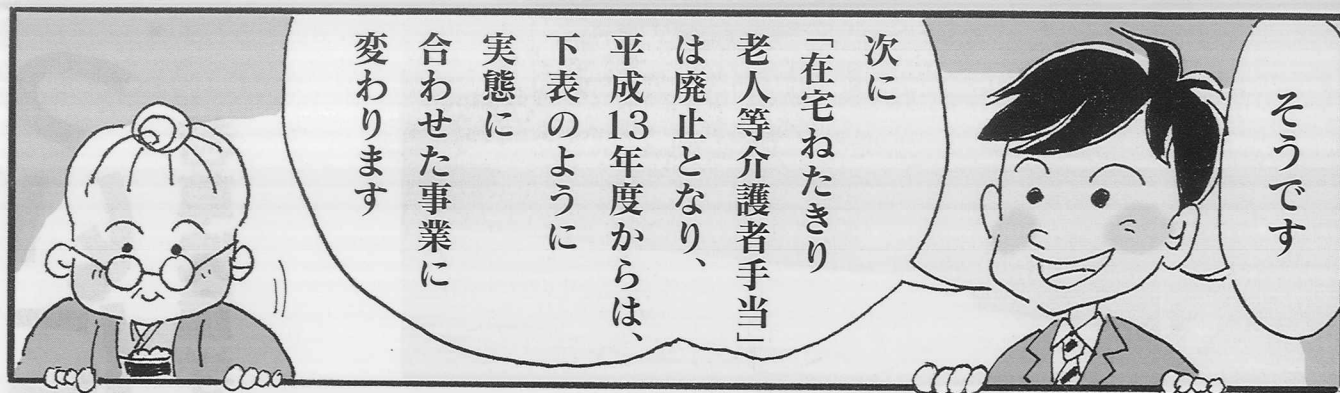 そうです
次に
「在宅ねたきり
老人等介護者手当」
は廃止となり、
平成13年度からは、
下表のように
実態に
合わせた事業に
変わります